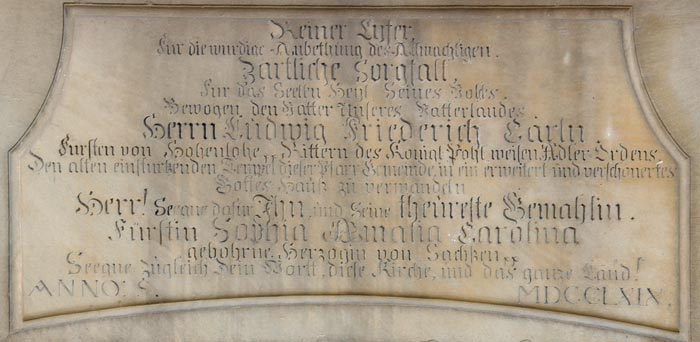 Reiner Eyfer,
Für die würdige Anbethung des Allmächtigen.
Zärtliche Sorgfalt,
Für das Seelen Heyl Seines Volks.
Bewogen den Vatter Unseres Vatterlandes
Herrn Ludwig Friederich Carln
Fürsten von Hohenlohe, Rittern des Königl Pohl. weisen Adler Ordens,
Den alten einstürtzenden Tempel dieser Pfarr Gemeinde, in ein erweitert und verschönertes
Gottes Hauß zu verwandeln
Herr! Seegne dafür Ihn, und Seine theüreste Gemahlin.
Fürstin Sophia Amalia Carolina
gebohrne Herzogin von Sachßen
Seegne zugleich Dein Wort, diese Kirche, und das gantze Land!
ANNO S. MDCCLXIX.